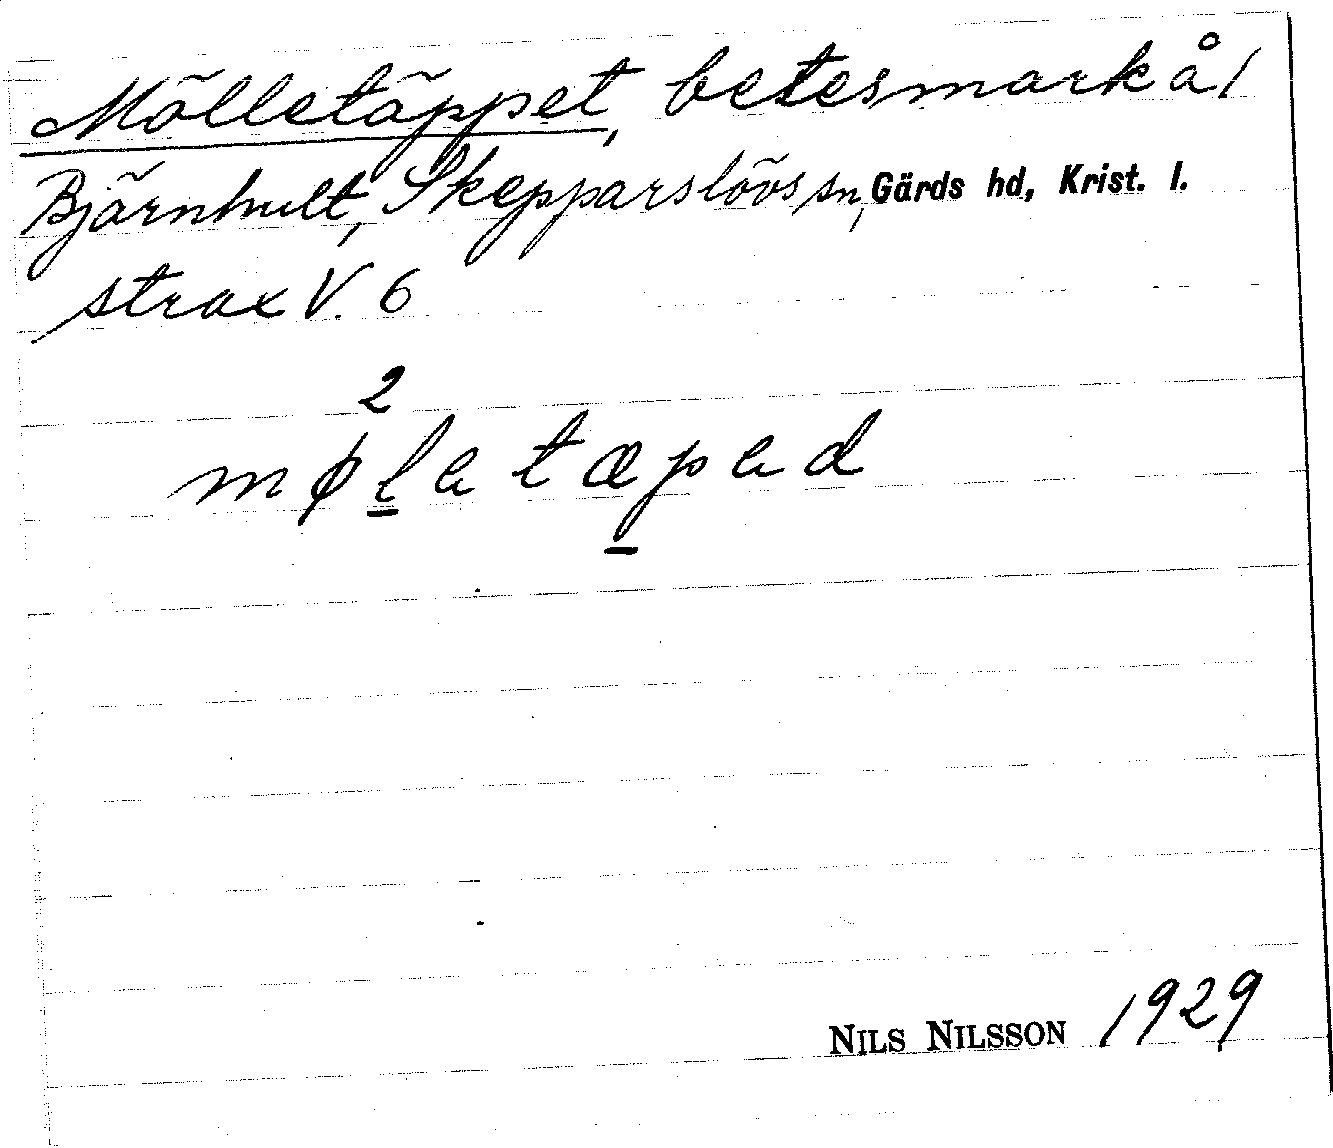 Mölletäppet, betesmark å 1
Bjärnhult, Skepparslövs sn, Gärds hd, Krist. l.
strax V. 6
2
møletæped
NILS NILSSON 1929